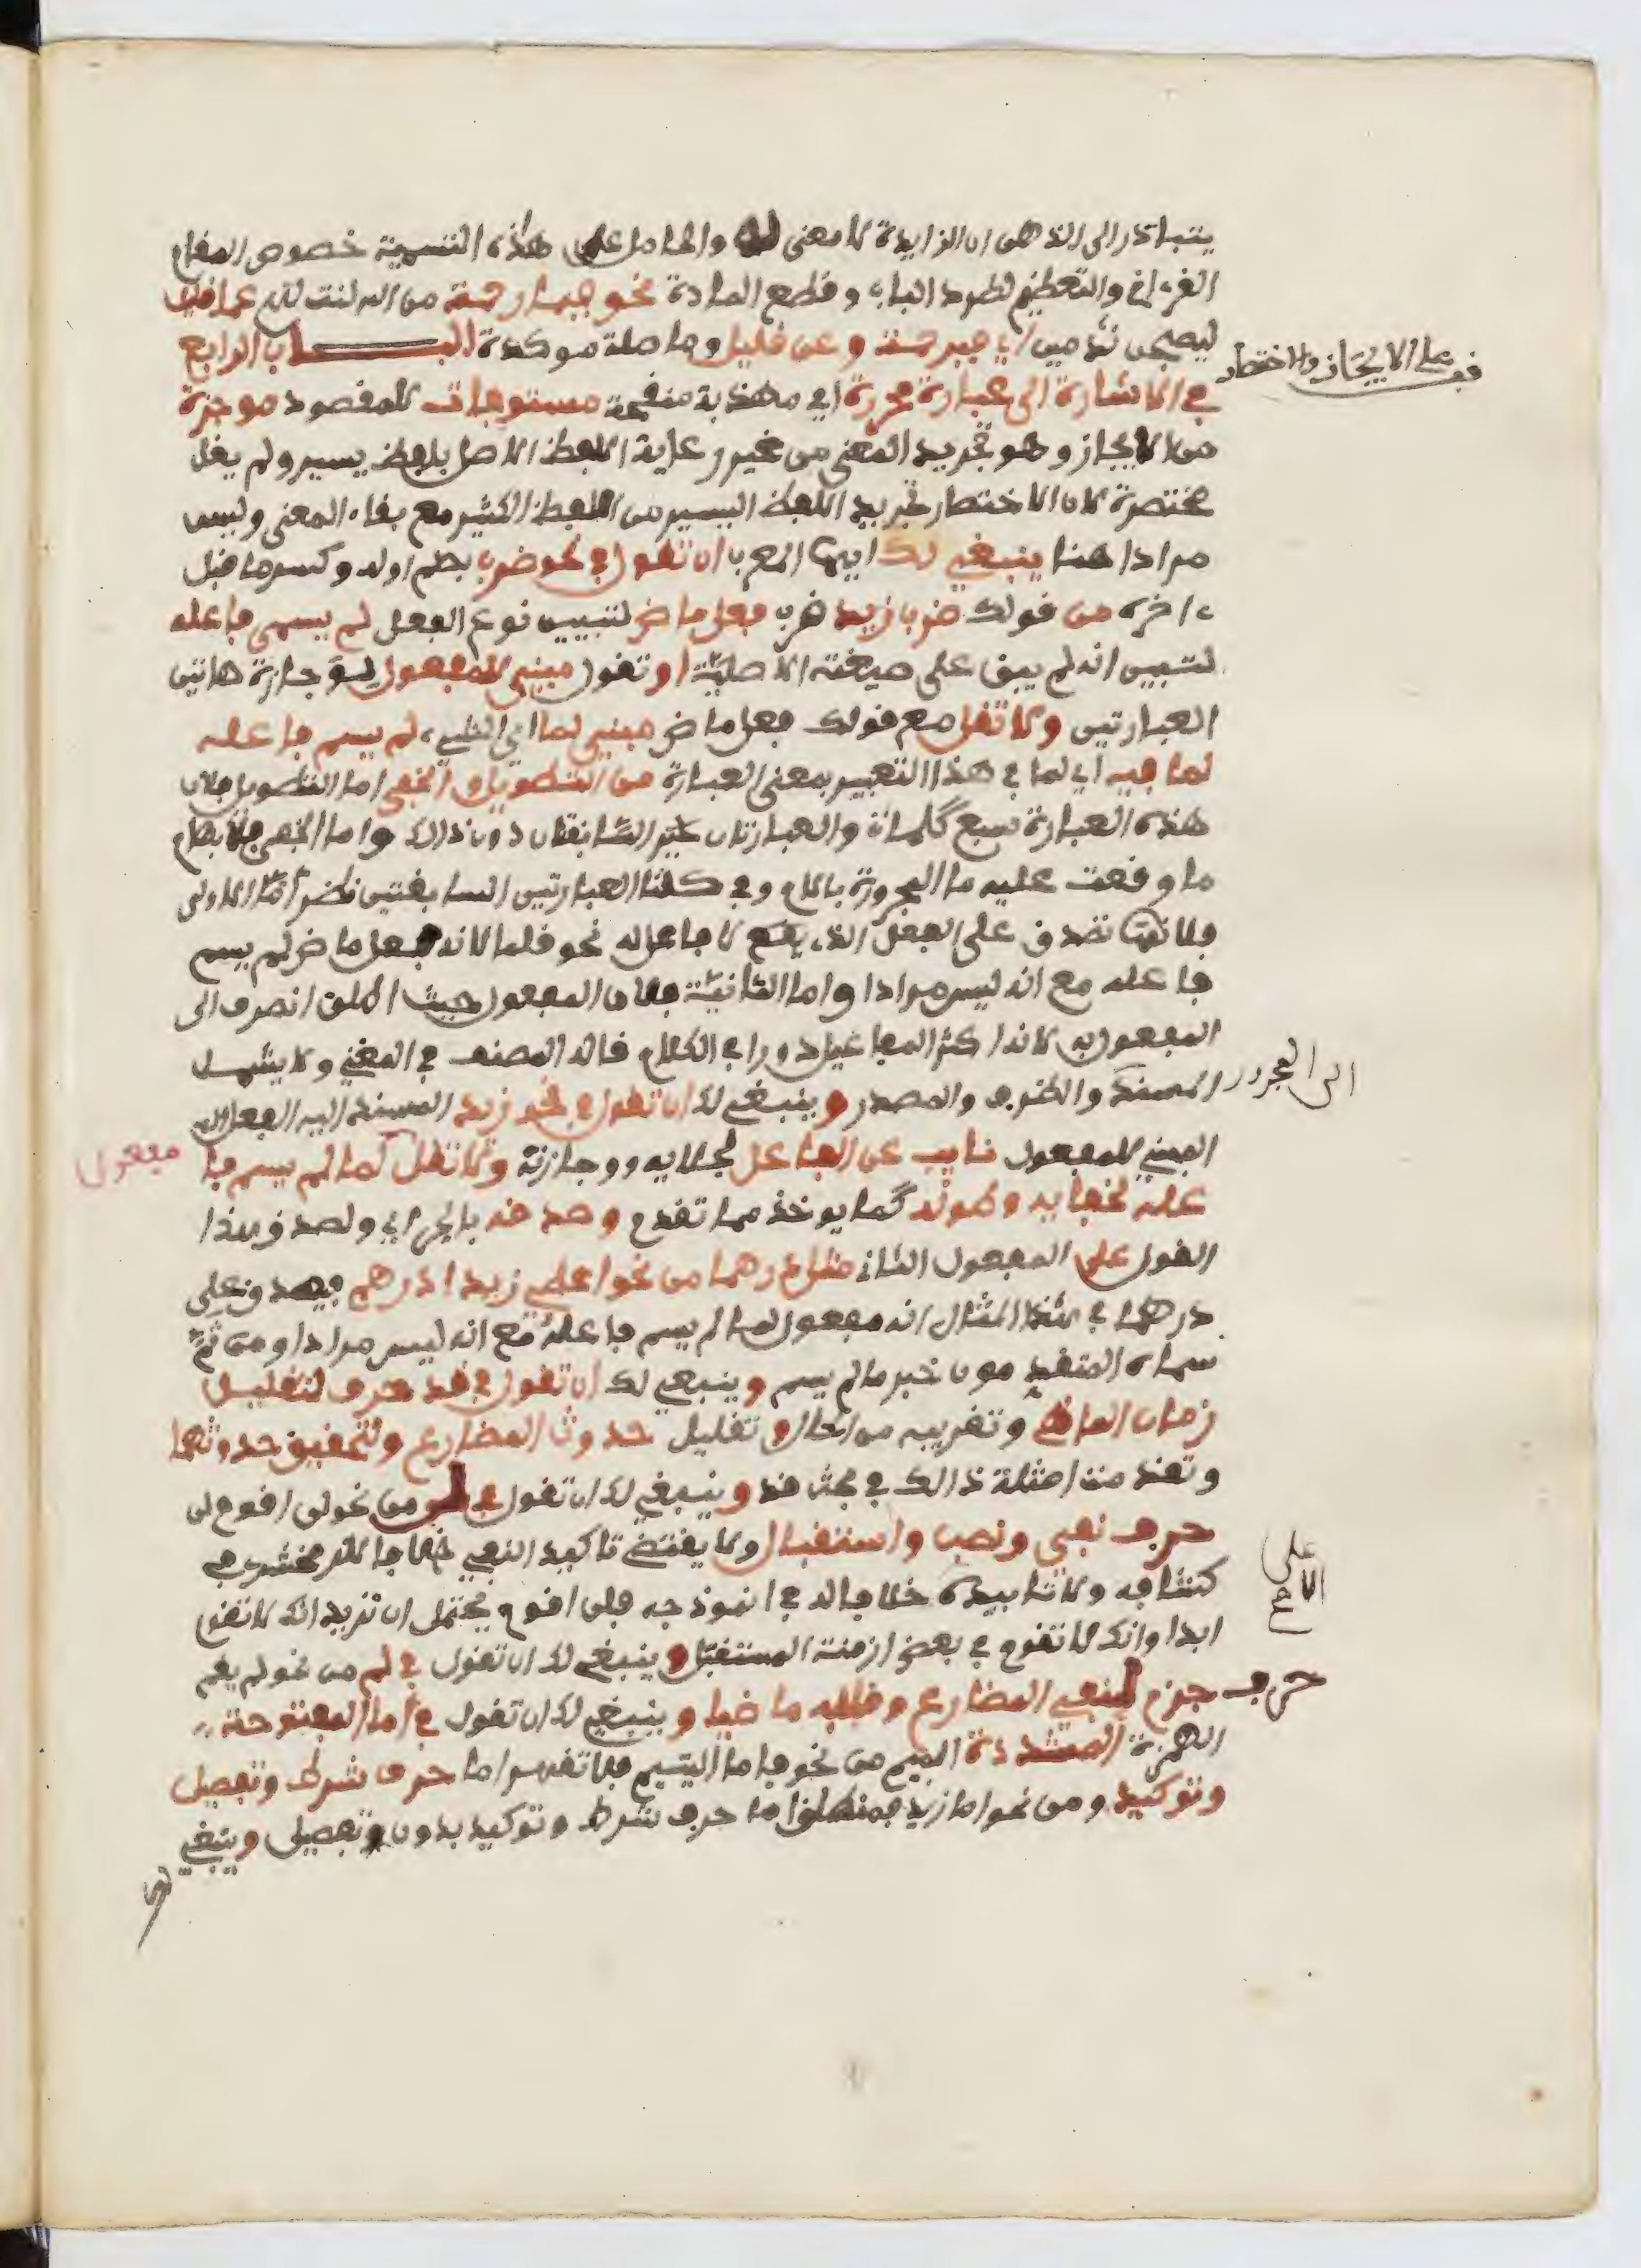 يتبادر الى الذهن ان الزايدة لا معنى لها والحامل على هذه التسمية خصوص المقام
القرءاني والتعظيم لطرد الباب وقطع المادة نحو فبما رحمة من الله لنت لهم عما قليل
ليصبحن ندمين اي فبرحمة وعن قليل وما صلة موكدة البــاب الرابع
في الاشارة الى عبارة محررة اي مهذبة منقحة مستوفات للمقصود موجزة
من الايجاز وهو تجريد المعنى من غير رعاية اللفظ الاصل بلفظ يسير ولم يقل
قف على الايجاز والاختصار
مختصرة لان الاختصار تجريد اللفظ اليسير من اللفظ الكثير مع بقاء المعنى وليس
مرادا هنا ينبغي لك ايها المعرب ان تقول في نحو ضرب بضم اوله وكسر ما قبل
ءاخره من قولك ضرب زيد ضرب فعل ماض لتبيين نوع الفعل لم يسمى فاعله
لتبيين انه لم يبق على صيغته الاصلية او تقول مبني للمفعول لوجازة هاتين
العبارتين ولا تقل مع قولك فعل ماض مبني لما اي الشيء لم يسم فاعله
لما فيه اي لما في هذا التعبير بمعنى العبارة من التطويل والخفي اما التطويل فلان
هذه العبارة سبع كلمات والعبارتان السابقتان دون ذالك واما الخفي فلابهام
ما وقعت عليه ما المجرورة باللام وفي كلتا العبارتين السابقتين نظر اما الاولى
فلانها تصدق على الفعل الذي يقع لا فاعل له نحو قلما لانه فعل ماض لم يسم
فاعله مع انه ليس مرادا واما الثانية فلان المفعول حيث اطلق انصرف الى
المفعول به لانه اكثر المفاعيل دورا في الكلام قاله المصنف في المغني ولا يشمل
المسند الى المجرور والظرف والمصدر وينبغي لك ان تقول في نحو زيد المسند اليه الفعل
المبني للمفعول نايب عن الفاعل لجلايه ووجازته ولا تقل كما لم يسم فا
مفعول
عله لخفايه وطوله كما يوخذ مما تقدم وصدقه بالجر اي ولصدق هذا
القول على المفعول الثاني مثل درهما من نحو اعطي زيد ادرهم فيصدق على
درهما في هذا المثال انه مفعول لما لم يسم فاعله مع انه ليس مرادا ومن ثم
سماه المتقدمون خبر ما لم يسم وينبغي لك ان تقول في قد حرف لتقليل
زمان الماضي وتقريبه من الحال وتقليل حدوث المضارع ولتحقيق حدوثهما
وتقدمت امثلة ذالك في بحث قد وينبغي لك ان تقول في لن من نحو لن اقوم لن
حرف نفي ونصب واستقبال ولا يقتضي تاكيد النفي خلافا للزمخشري في
كشافه ولا تابيده خلافا له في انموذجه فلن اقوم يحتمل ان تريد انك لا تقوم
على الاصح
ابدا وانك لا تقوم في بعض ازمنة المستقبل وينبغي لك ان تقول في لم من نحو لم يقم
حرف جزم لنفي المضارع وقلبه ماضيا وينبغي لك ان تقول في اما المفتوحة
الهمزة المشددة الميم من نحو فاما اليتيم فلا تقهر اما حرف شرط وتفصيل
وتوكيد ومن نحو اما زيد فمنطلق اما حرف شرط وتوكيد بدون تفصيل وينبغي